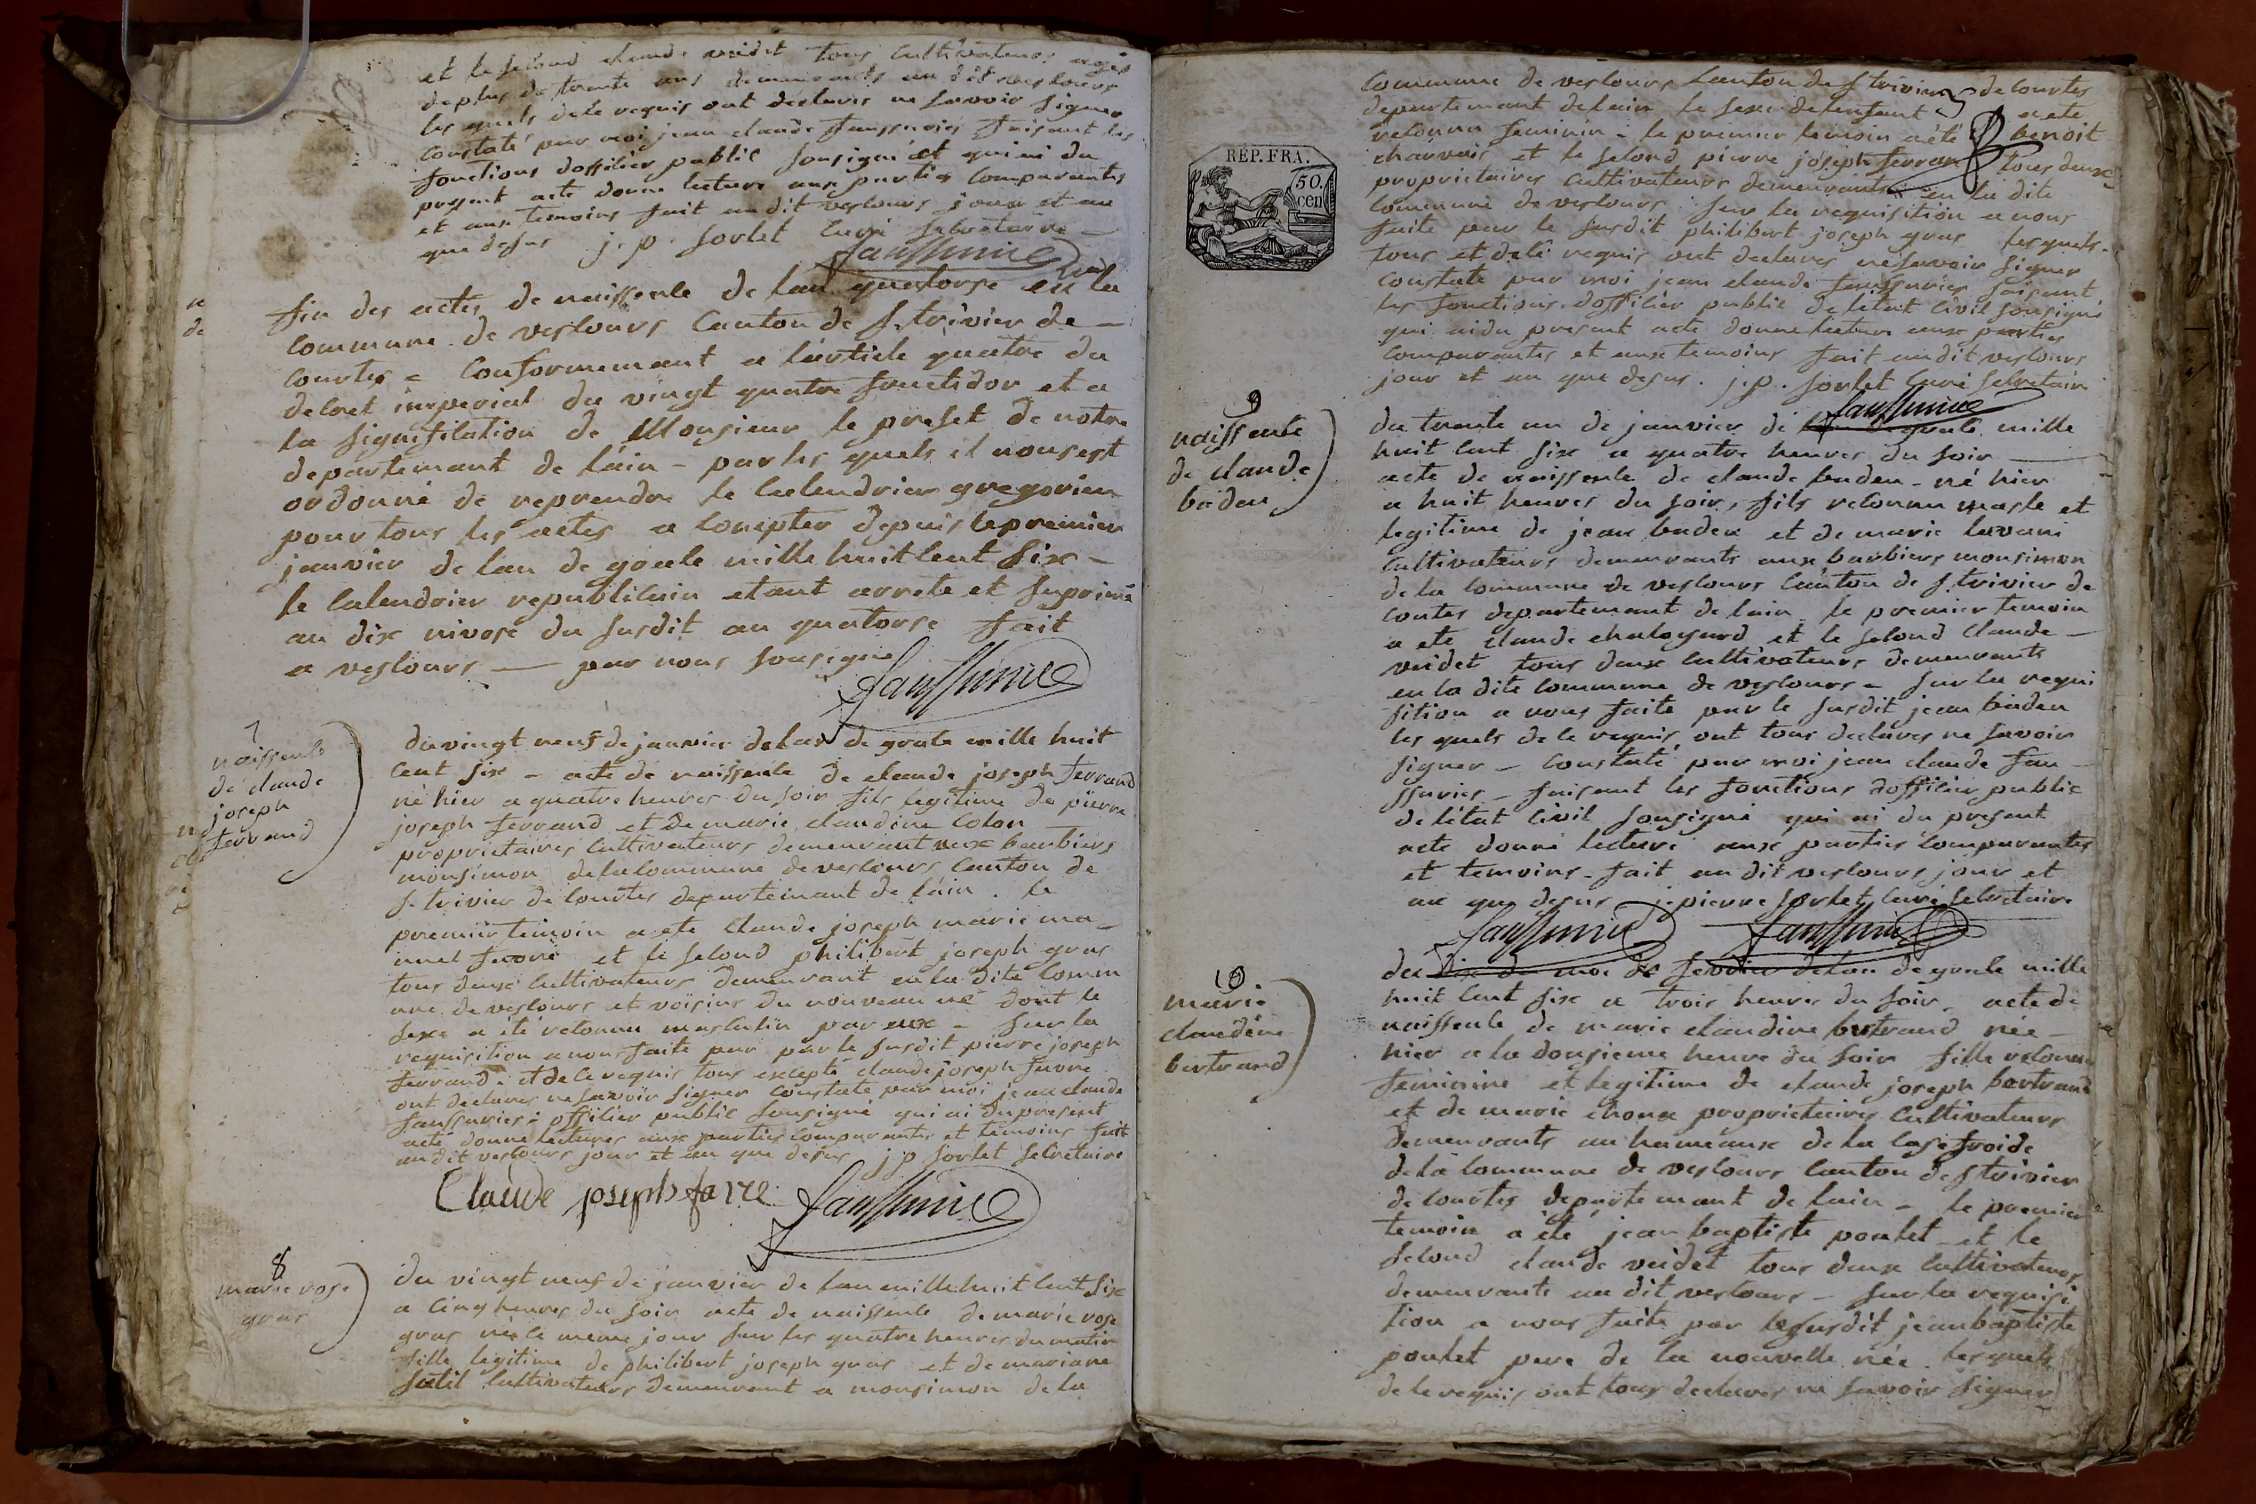 et le second claude veidet tous cultivateurs agés
de plus de trente ans demeurants au dit vescours
les quels de le requis ont declares ne savoir signer
constaté par moi jean claude faussurier faisant les
fonctions dofficier public sousigné et qui ai du
present acte donne lecture aux parties comparantes
et aux temoins fait au dit vescours jour et an
que desus j. p. sorlet curé secretaire
fin des actes de naissence de lan quatorse en la
commune de vescours canton de st trivier de
courtes = conformement a l'article quatre du
decret imperial du vingt quatre fructidor et a
la signification de Monsieur le prefet de notre
departement de l'ain - par les quels il nous est
ordonné de reprendre le calendrier gregorien
pour tous les actes a compter depuis le premier
janvier de lan de grace mille huit cent six -
le calendrier republicain etant arrete et suprimé
au dix nivose du susdit an quatorse fait
a vescours — par nous sousigné
7
naissence
de claude
joseph
ferrand
du vingt neuf de janvier de lan de grace mille huit
cent six - acte de naissence de claude joseph ferrand
né hier a quatre heures du soir fils legitime de pierre
joseph ferrand et de marie claudine colon
proprietaires cultivateurs demeurant aux barbiers
monsimon de la commune de vescours canton de
st trivier de courtes departement de l'ain . le
premier temoin a ete claude joseph marie ma
et le second philibert joseph gras
tous deux cultivateurs demeurant en la dite comm
une de vescours et voisins du nouveau né dont le
sexe a été reconnu masculin par eux - sur la
requisition a nous faite par par le susdit pierre joseph
ferrand . et de le requis tous excepté claude joseph favre
ont declares ne savoir signer constaté par moi jean claude
faussurier officier public sousigné qui ai du present
acte donne lectures aux parties comparantes et temoins fait
au dit vescours jour et an que desus j p sorlet secretaire
Claude joseph favre
8
marie rose
gras
du vingt neuf de janvier de lan mille huit cent six
a cinq heures du soir acte de naissence de marie rose
gras née le meme jour sur les quatre heures du matin
fille legitime de philibert joseph gras et de mariane
cultivateurs demeurant a monsimon de la
RÉP. FRA.
50.
cen
commune de vescours canton de st trivier de courtes
departement de lain le sexe de lenfant a ete
reconnu feminin - le premier temoin a été benoit
charvais et le second pierre joseph ferran tous deux
proprietaires cultivateurs demeurants en la dite
commune de vescours . sur la requisition a nous
faite par le susdit philibert joseph gras lesquels
tous et de le requis ont declares ne savoir signer
constaté par moi jean claude faussurier faisant
les fonctions dofficier public de letat civil sousigné
qui ai du present acte donne lecture aux parties
comparantes et aux temoins fait au dit vescours
jour et an que desus . j. p. sorlet curé secretaire
9
naissente
de claude
badeu
du trente un de janvier de grace mille
huit cent six a quatre heures du soir
acte de naissence de claude badeu - né hier
a huit heures du soir, fils reconnu masle et
legitime de jean badeu et de marie
cultivateurs demeurants aux barbiers monsimon
de la commune de vescours canton de st trivier de
coutes departement de lain le premier temoin
a ete claude chaloyard et le second claude
veidet tous deux cultivateurs demeurants
en la dite commune de vescours - sur la requi
sition a nous faite par le susdit jean badeu
les quels de le requis ont tous declares ne savoir
signer - constaté par moi jean claude fau
ssurier - faisant les fonctions dofficier public
de l'état civil sousigné qui ai du present
acte donné lecture aux parties comparantes
et temoins - fait au dit vescours jour et
an que desus j. pierre sorlet curé secretaire
10
marie
claudine
bertrand
du dix du moi de fevrier de lan de grace mille
huit cent six a trois heures du soir, acte de
naissence de marie claudine bertrand née
hier a la dousieme heure du soir fille reconnu
feminine et legitime de claude joseph bertrand
et de marie choux proprietaires cultivateurs
demeurants au hameaux de la case froide
de la commune de vescours canton de st trivier
de courtes departemant de lain - le premier
temoin a été jean baptiste poulet et le
second claude veidet tous deux cultivateurs
demeurants au dit vescours - sur la requisi
tion a nous faite par le susdit jean baptiste
poulet pere de la nouvelle née . lesquels
de le requis ont tous declares ne savoir signer